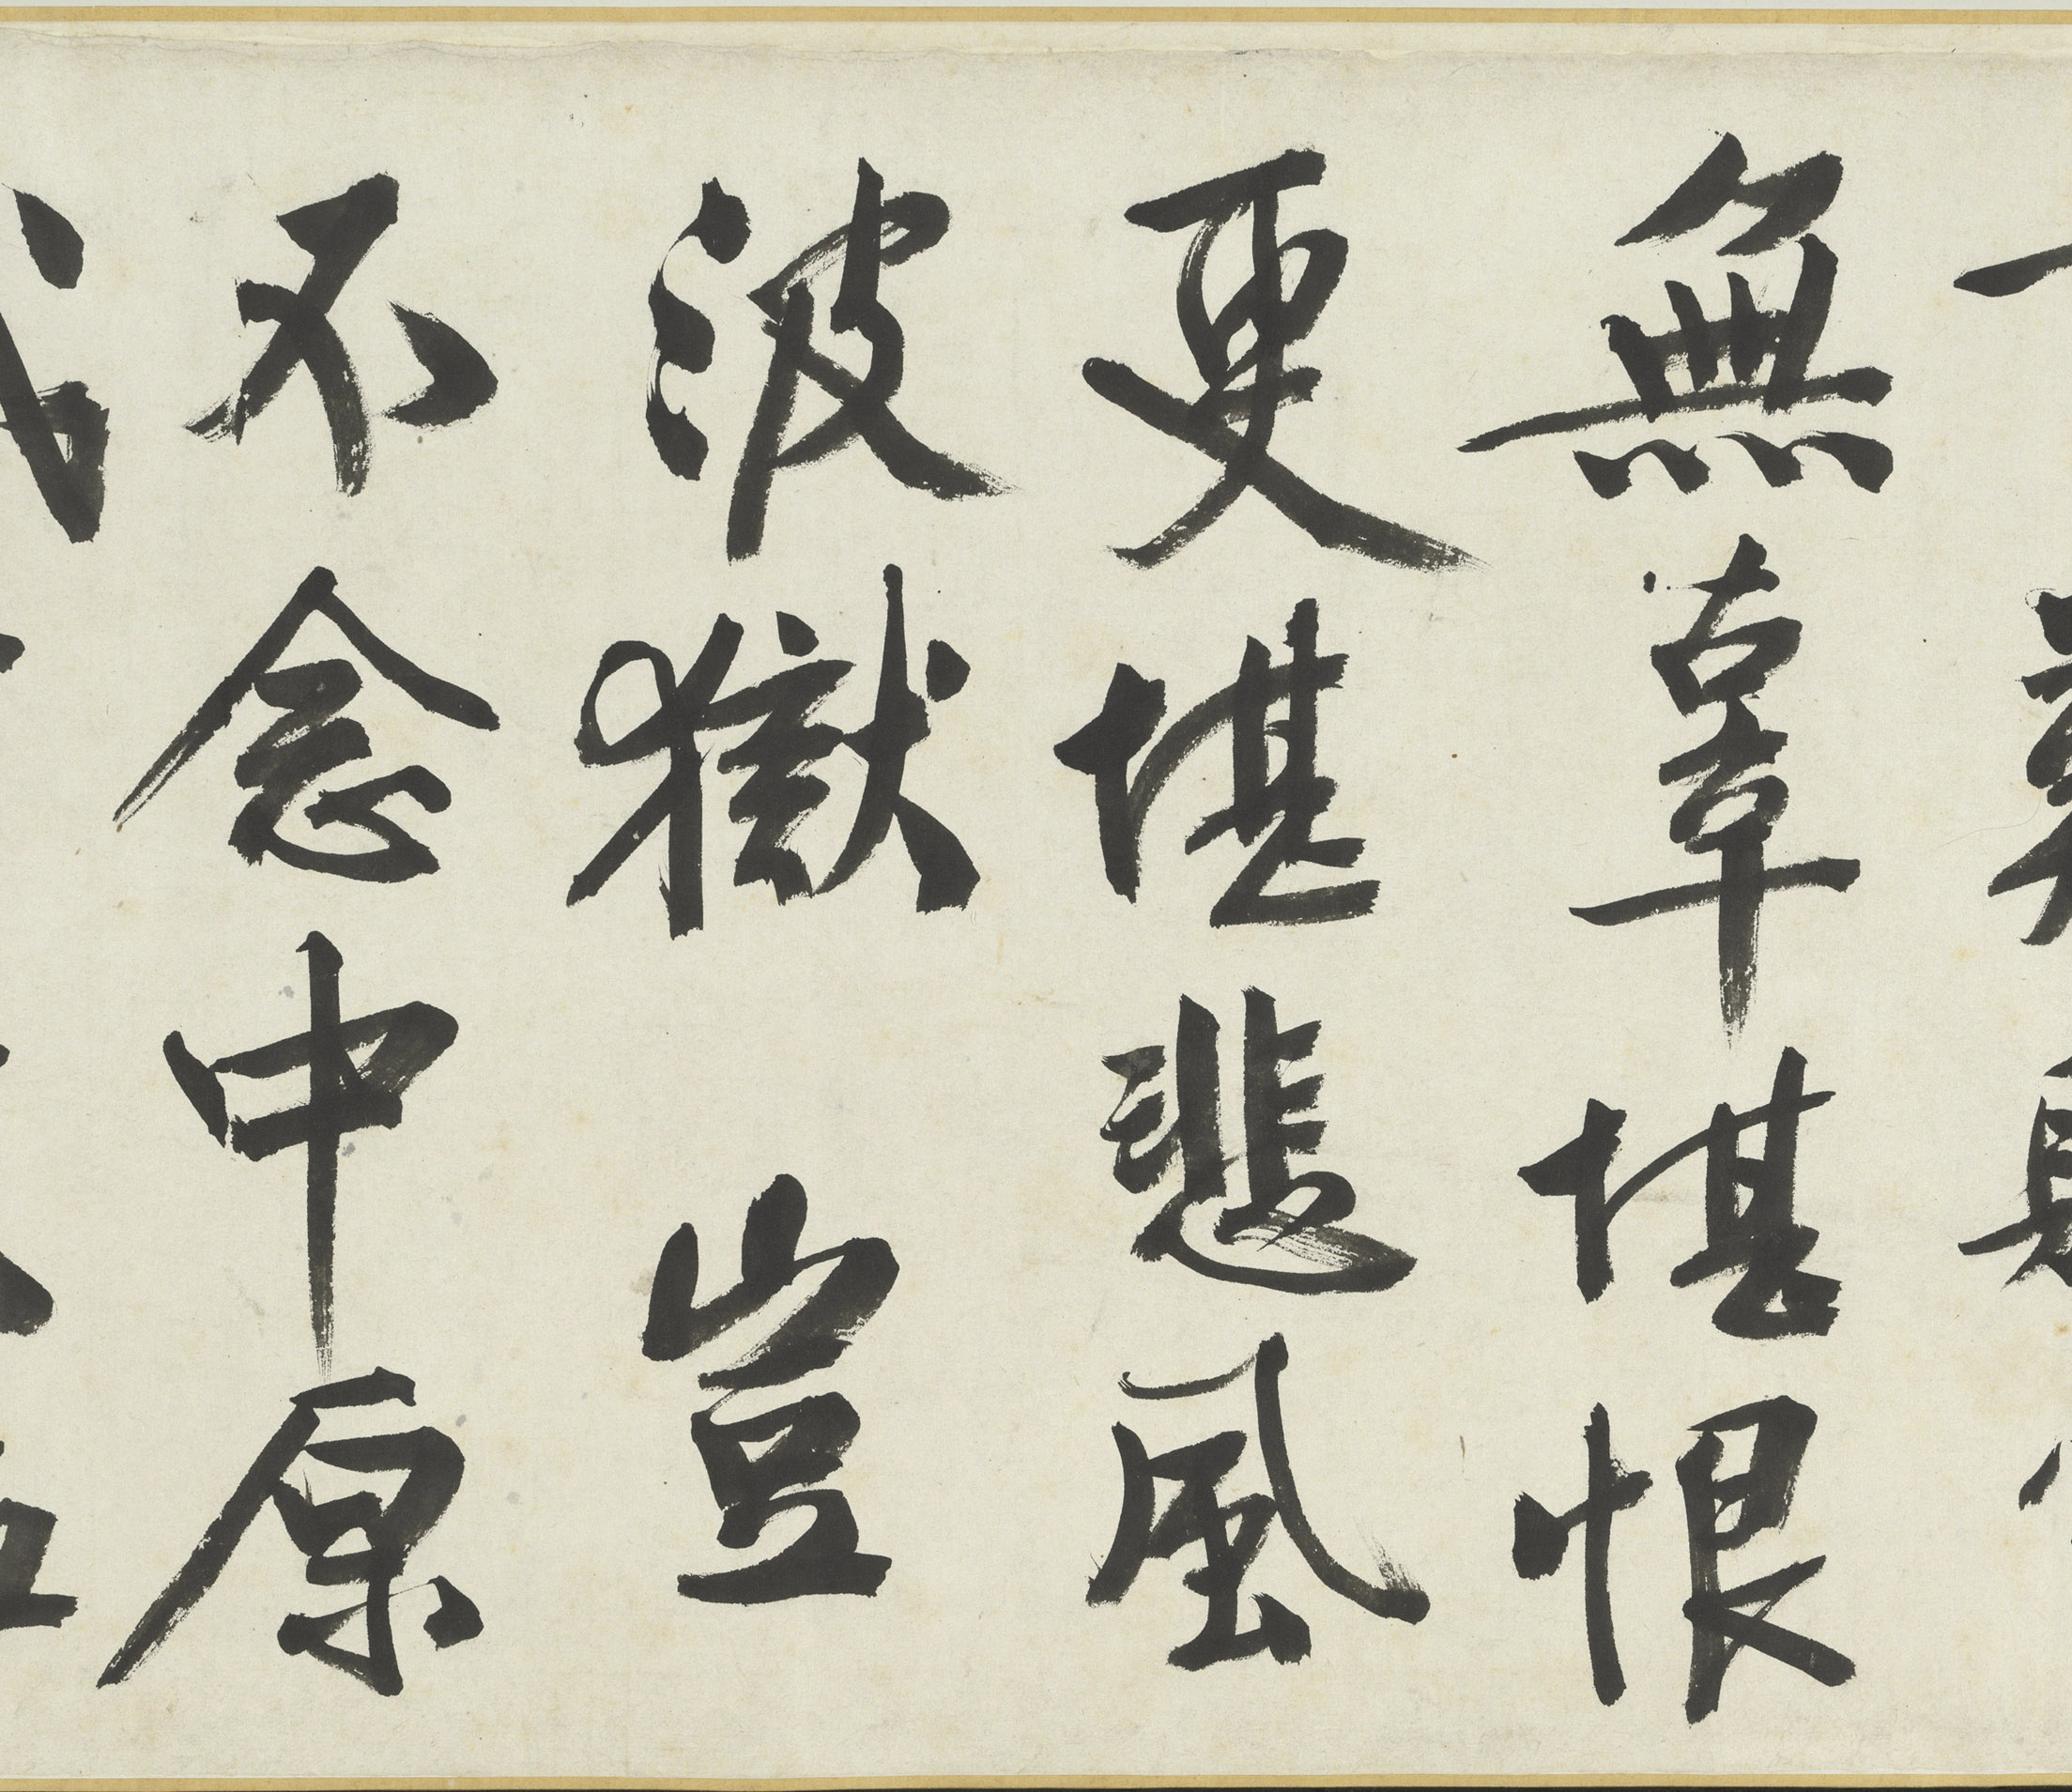 無辜堪恨
更堪悲風
波獄豈
不念中原